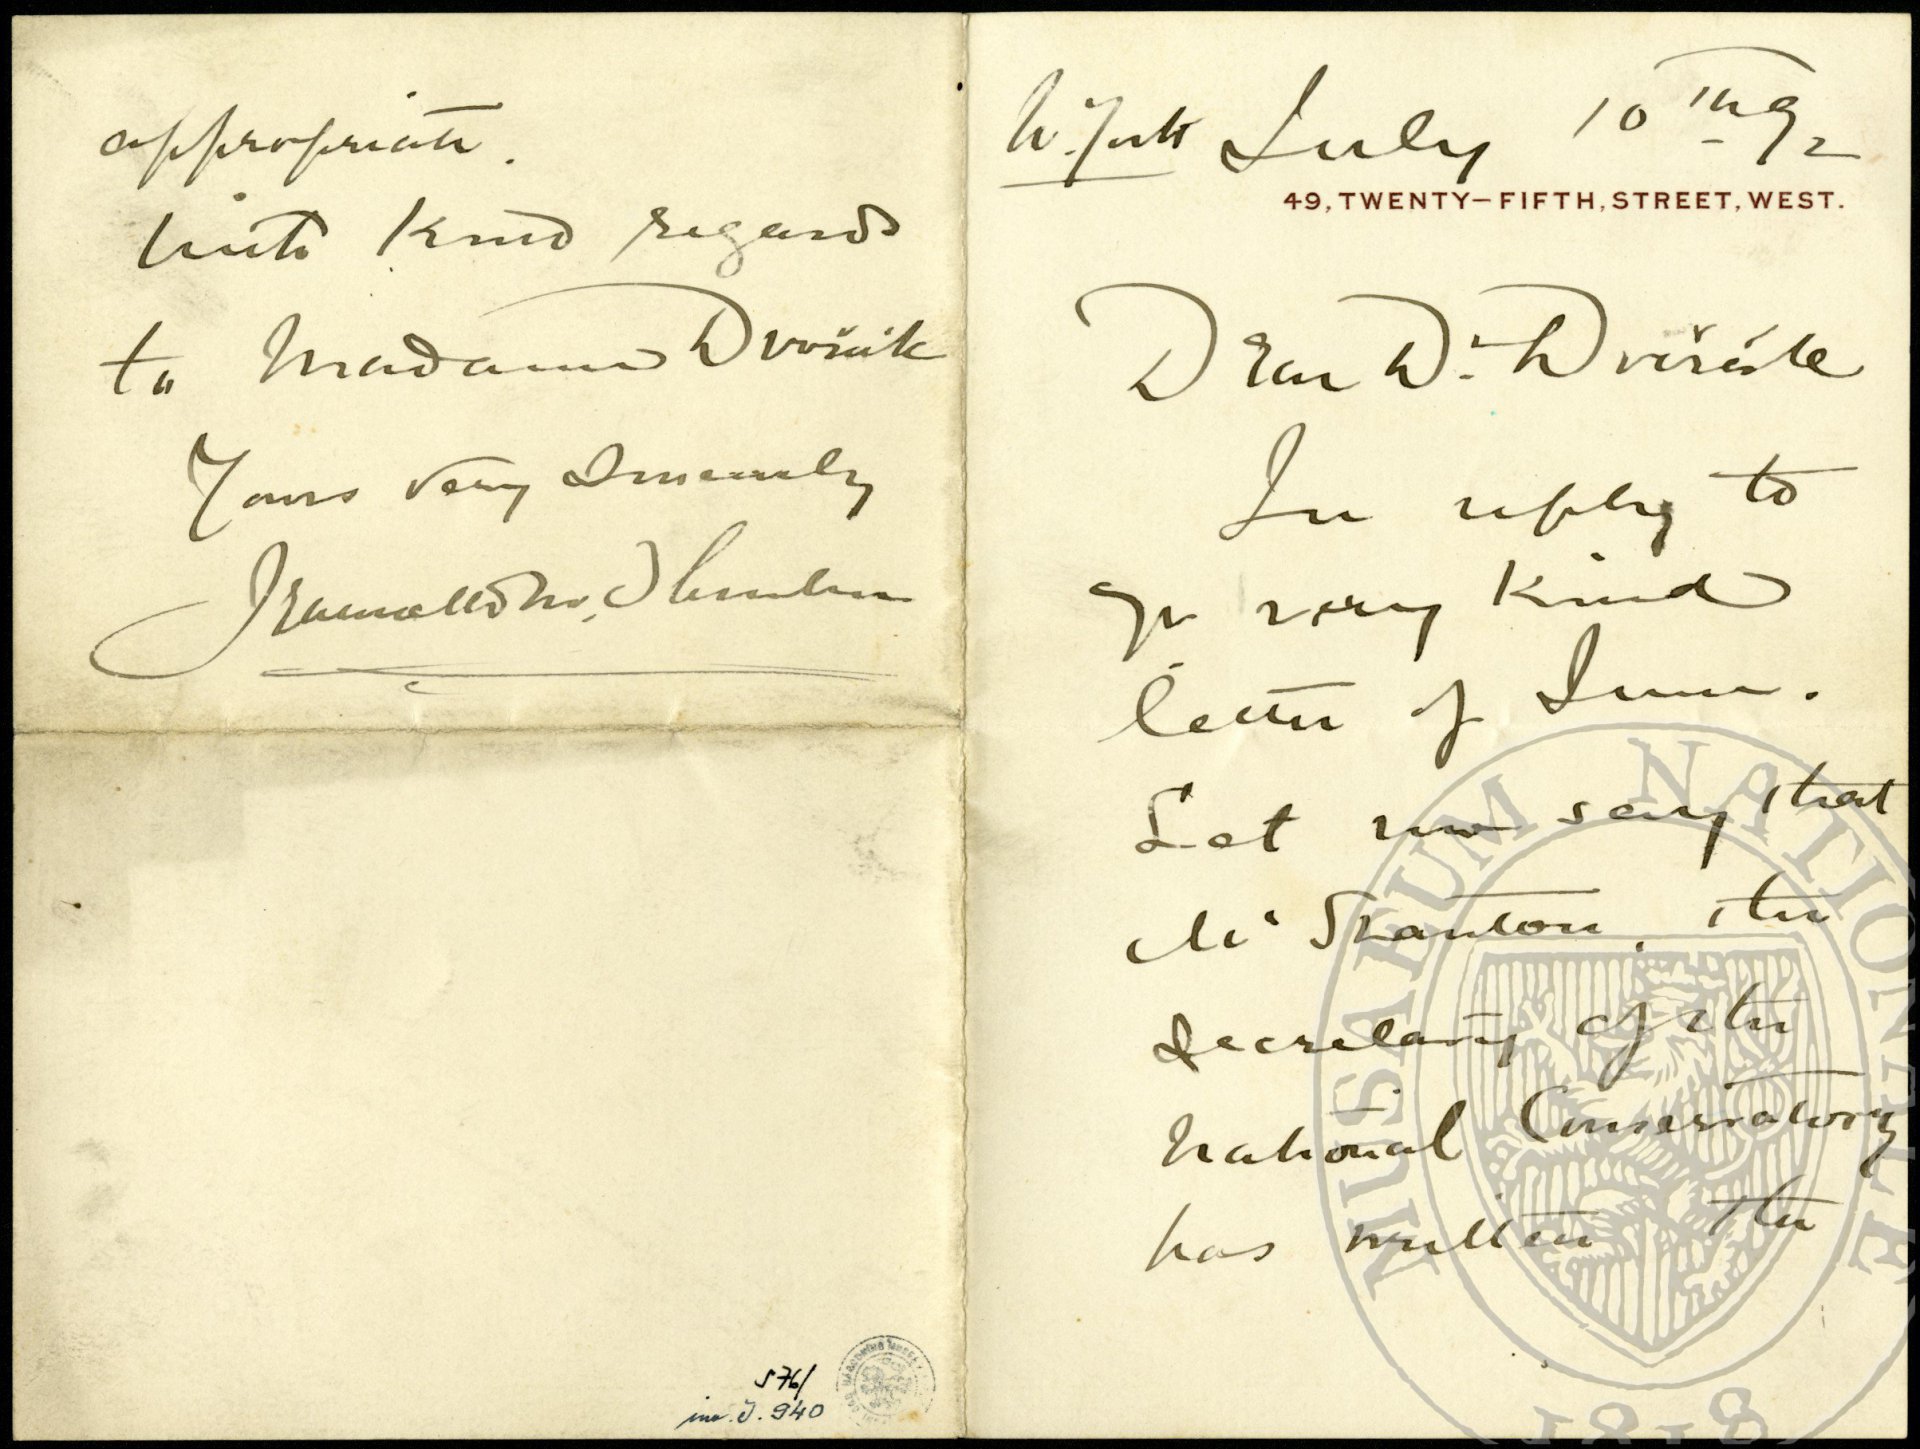 N. York July 10th 92
49, TWENTY-FIFTH, STREET, WEST.
Dear Dr. Dvořák
In reply to
yr very kind
letter of June.
Let me say that
Mr Stanton, the
Secretary of the
National Conservatory
has written the
appropriate.
With kind regards
to Madame Dvořák
Yours very sincerely
Jeannette M. Thurber
576/
inv. č. 940
MUSAEUM NATIONALE
1818